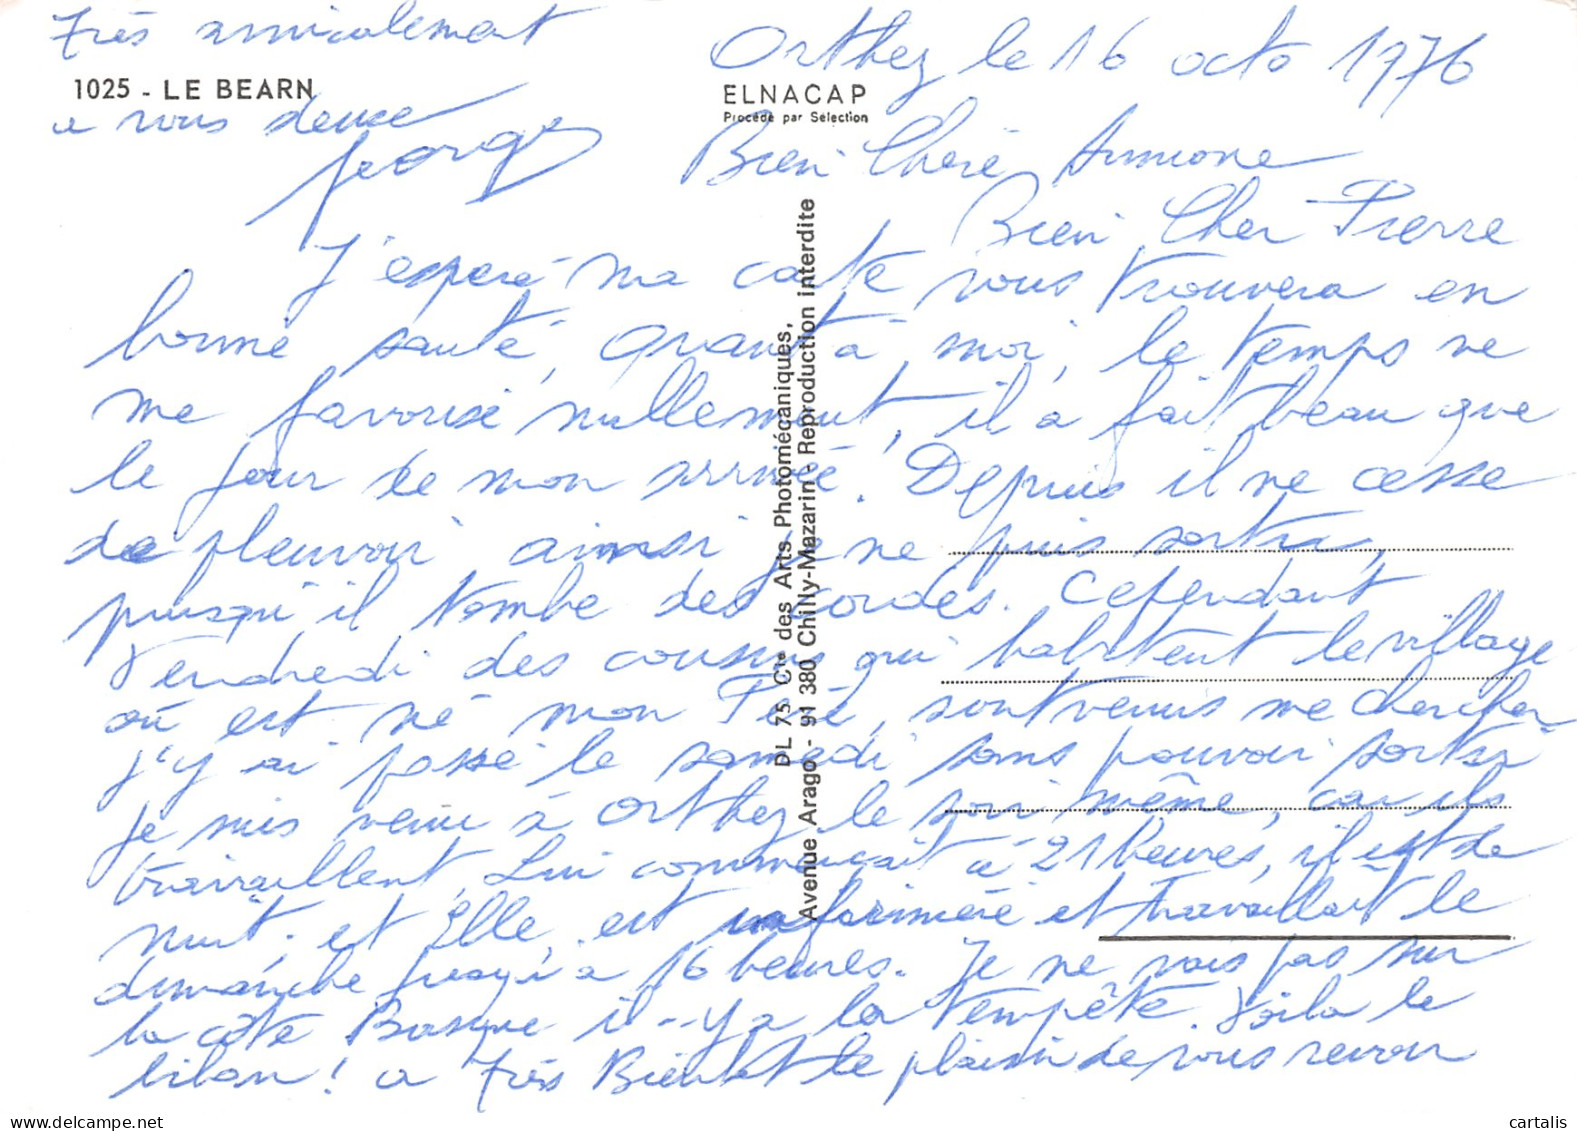 Très amicalement
1025 - LE BEARN
a vous deux
Georges
Orthez le 16 octo 1976
ELNACAP
Procédé par Sélection
Bien Chère Simone
Bien Cher Pierre
J'espère ma carte vous trouvera en
bonne santé, quant à moi, le temps ne
me favorise nullement, il a fait beau que
le jour de mon arrivée. Depuis il ne cesse
de pleuvoir ainsi je ne puis sortir,
puisqu'il tombe des cordes. Cependant
Vendredi des cousins qui habitent le village
où est né mon Père, sont venus me chercher
j'y ai passé le samedi sans pouvoir sortir
je suis venu à Orthez le soir même, car ils
travaillent, Lui commençait à 21 heures, il est de
nuit, et Elle, est infirmière et travaillait le
dimanche jusqu'à 16 heures. Je ne vais pas sur
la côte Basque il y a la tempête. Voila le
bilan ! a Très Bientôt le plaisir de vous revoir
DL 75 Cie des Arts Photomécaniques,
Avenue Arago - 91 380 Chilly-Mazarin - Reproduction interdite
cartalis